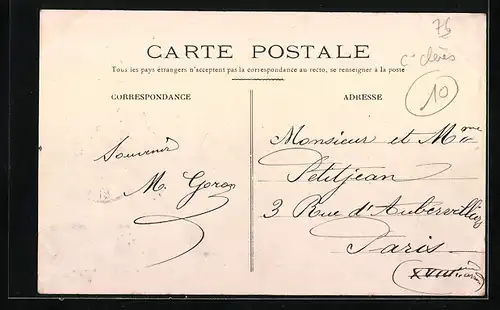 75
CARTE POSTALE
Tous les pays étrangers n'acceptent pas la correspondance au recto, se renseigner à la poste
10
CORRESPONDANCE
ADRESSE
Souvenir
Monsieur et Mme
Petitjean
3 Rue d'Aubervilliers
Paris